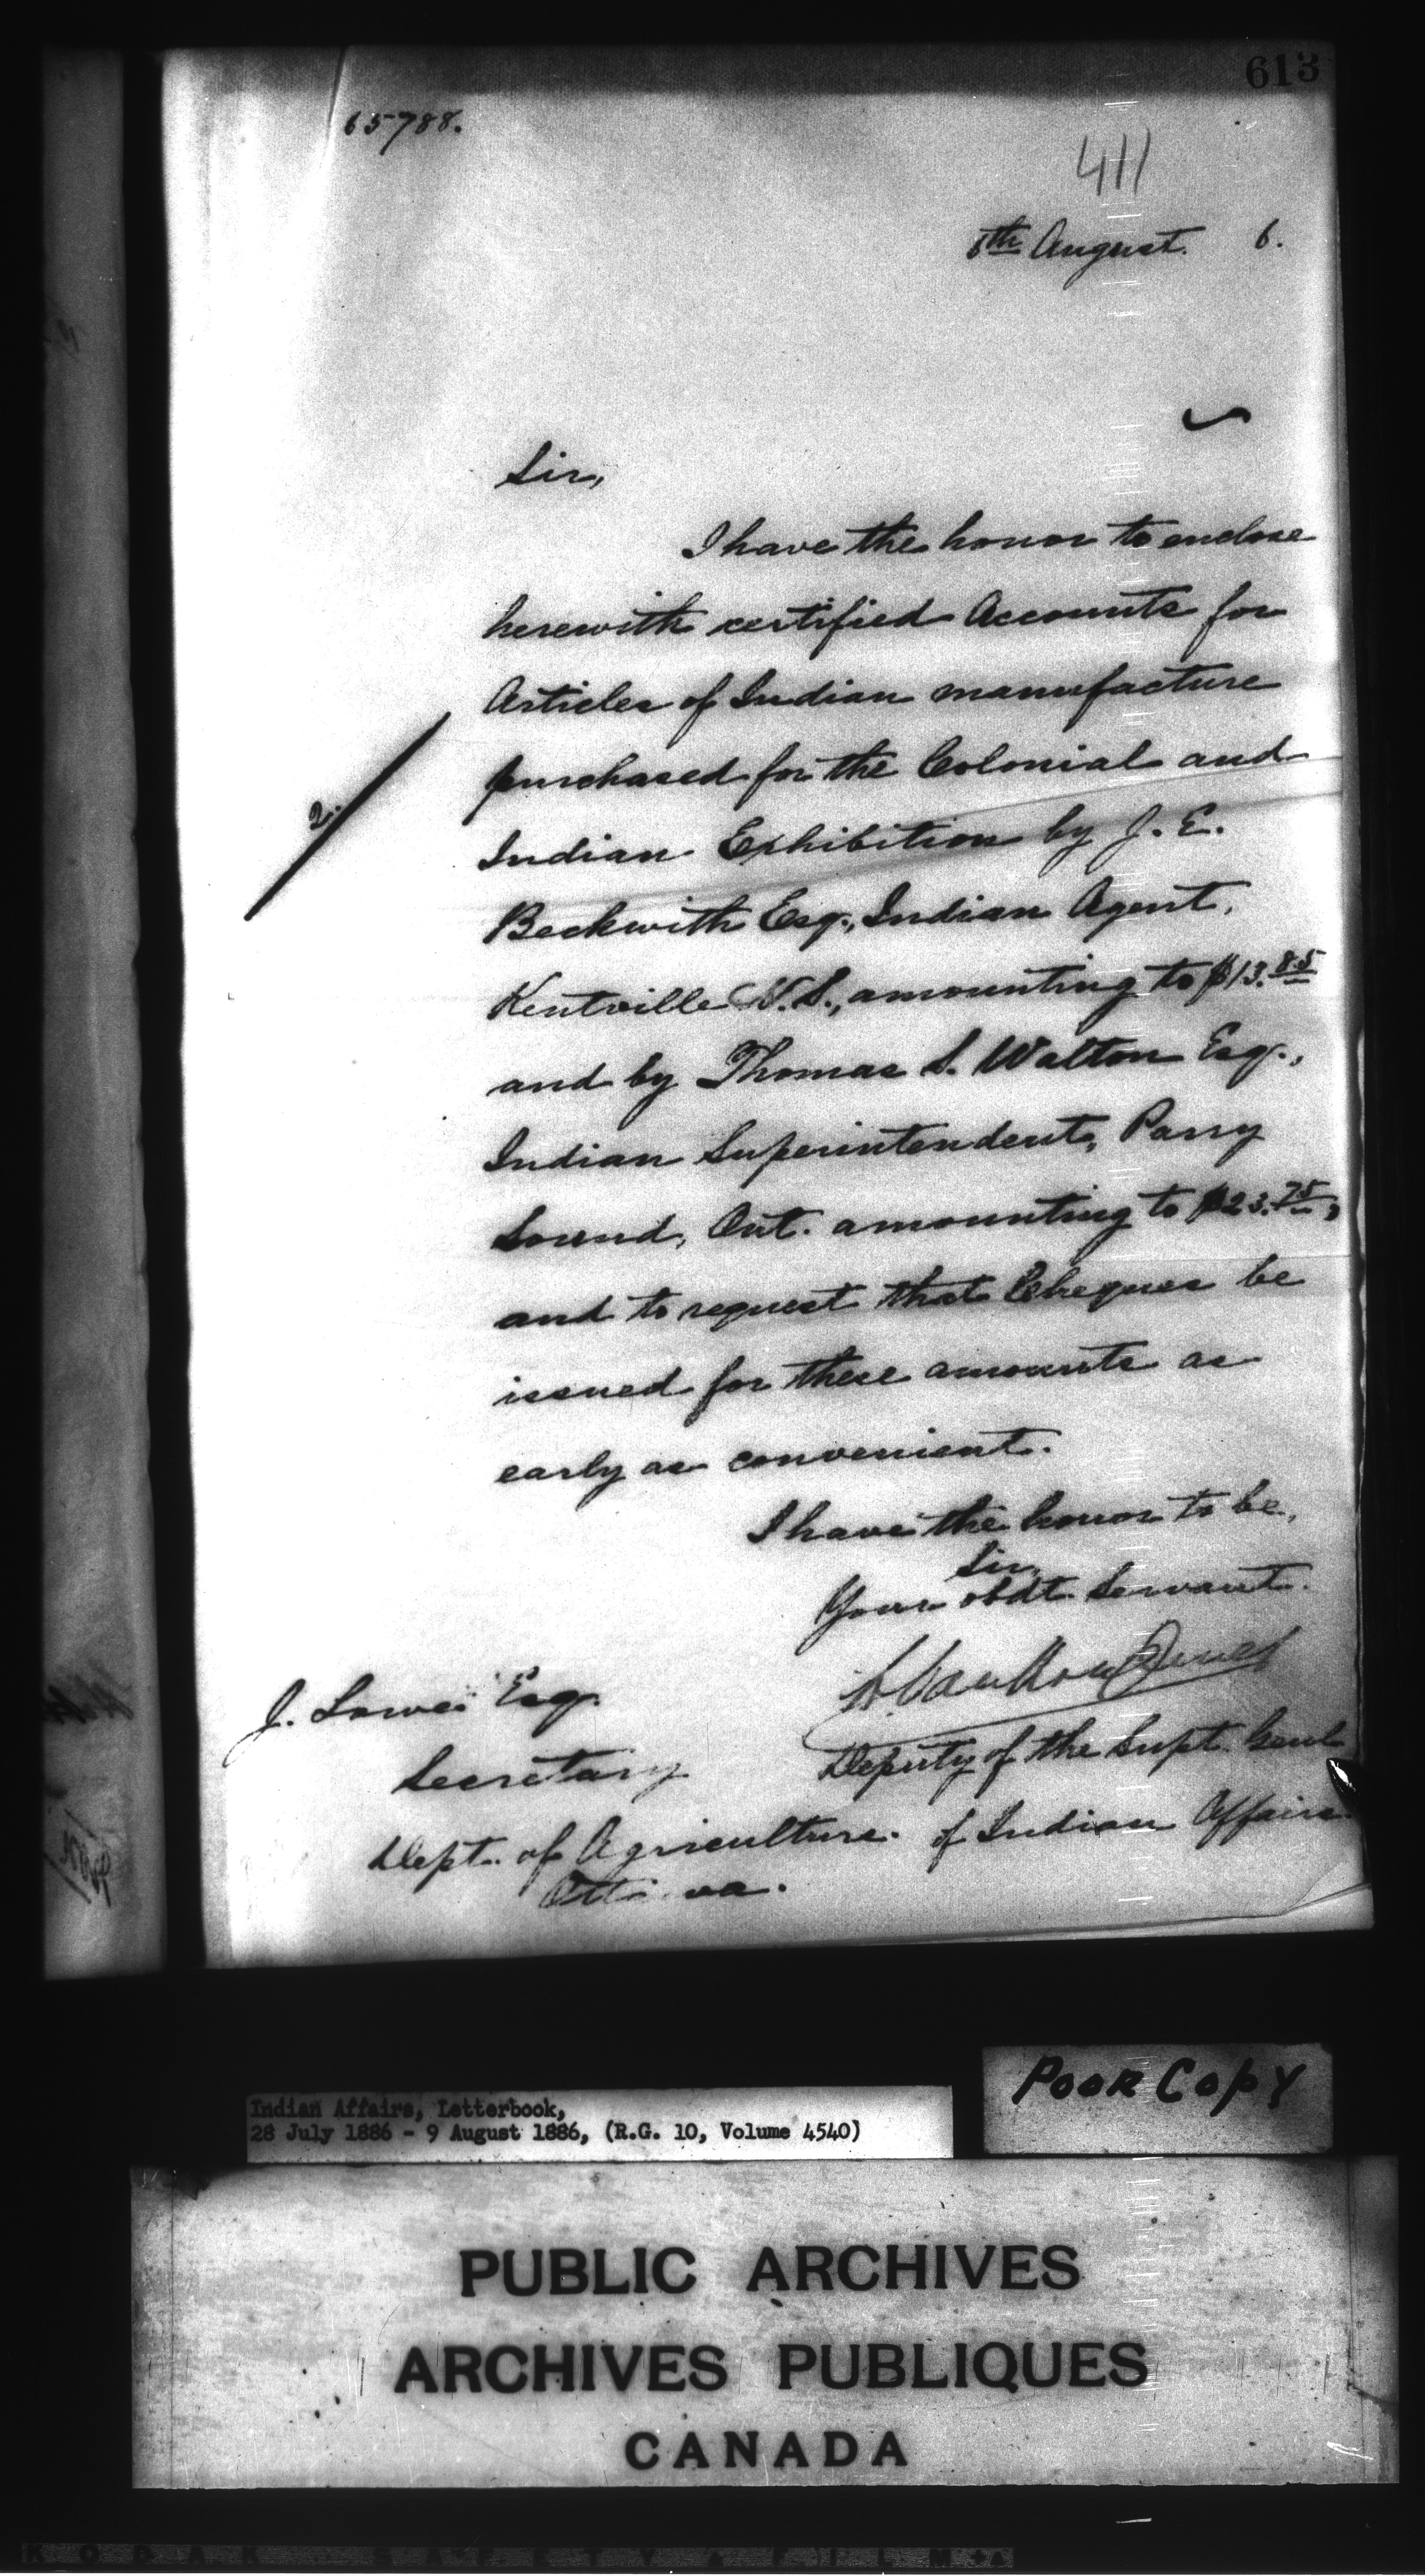 613
65788.
411
6th August. 6.
Sir,
I have the honor to enclose
herewith certified Accounts for
Articles of Indian manufacture
purchased for the Colonial and
2.
Indian Exhibition by J. E.
Beckwith Esq., Indian Agent,
Kentville N.S., amounting to $13.85
and by Thomas S. Walton Esq.,
Indian Superintendent, Parry
Sound, Ont. amounting to $23.75,
and to request that Cheques be
issued for these amounts as
early as convenient.
I have the honor to be,
Sir,
Your obdt. Servant.
L. VanKoughnet
J. Lowe Esq.
Deputy of the Supt. Genl
Secretary
of Indian Affairs.
Dept. of Agriculture.
Ottawa.
Poor Copy
Indian Affairs, Letterbook,
28 July 1886 - 9 August 1886, (R.G. 10, Volume 4540)
PUBLIC ARCHIVES
ARCHIVES PUBLIQUES
CANADA
KODAK SAFETY FILM